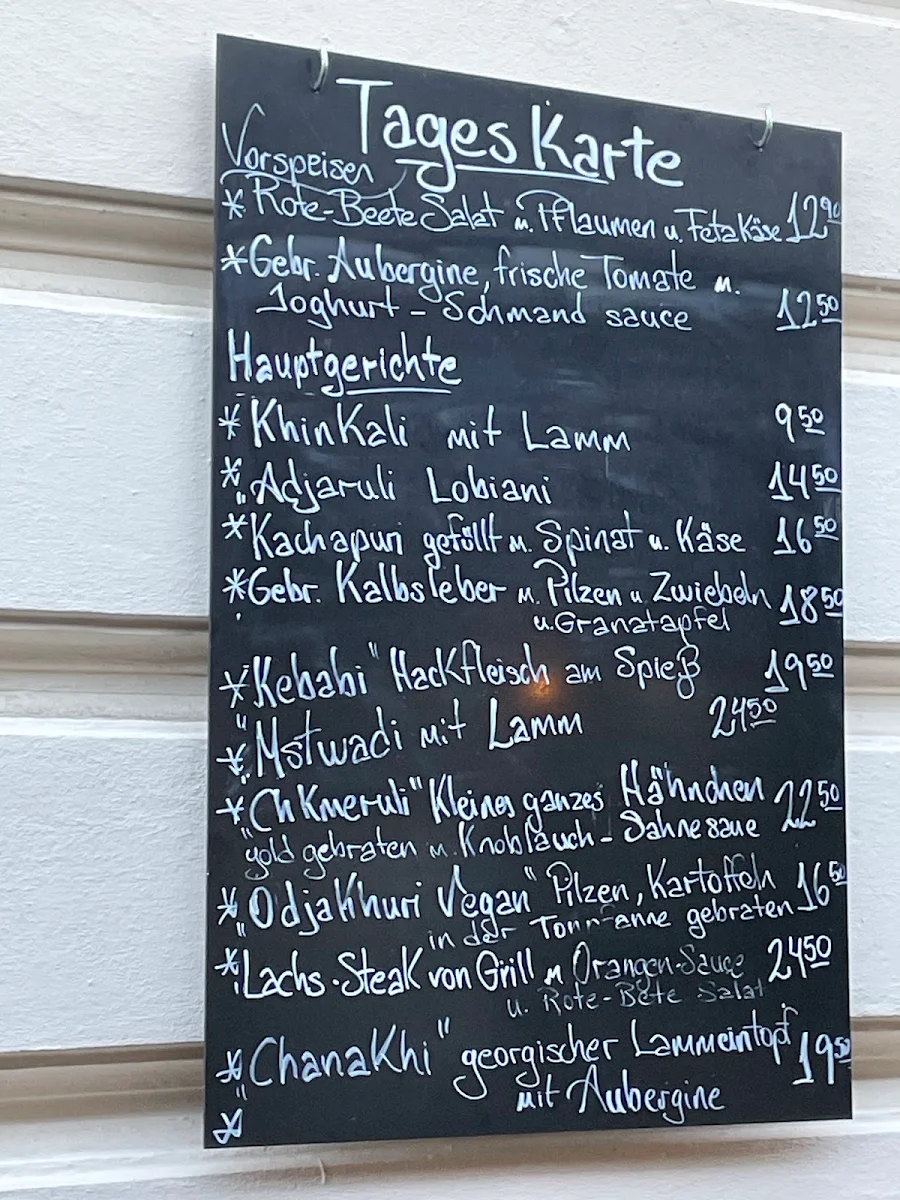 Tages Karte
Vorspeisen
* Rote-Beete Salat m. Pflaumen u. Feta Käse 12 90
* Gebr. Aubergine, frische Tomate m.
Joghurt - Schmand sauce 12 50
Hauptgerichte
* Khinkali mit Lamm 9 50
* Adjaruli Lobiani 14 50
* "Kachapuri gefüllt m. Spinat u. Käse 16 50
* Gebr. Kalbsleber m. Pilzen u Zwiebeln 18 50
u. Granatapfel
* Kebabi" Hackfleisch am Spieß 19 50
* "Mstwadi mit Lamm 24 50
* "Chkmeruli" Kleines ganzes Hähnchen 22 50
gold gebraten m. Knoblauch - Sahnesaue
* "Odjakhuri Vegan" Pilzen, Kartoffeln 16 50
in der gebraten
* Lachs-Steak von Grill m Orangen-Sauce 24 50
u. Rote-Bete Salat
* "Chanakhi" georgischer Lammeintopf 19 50
mit Aubergine
*